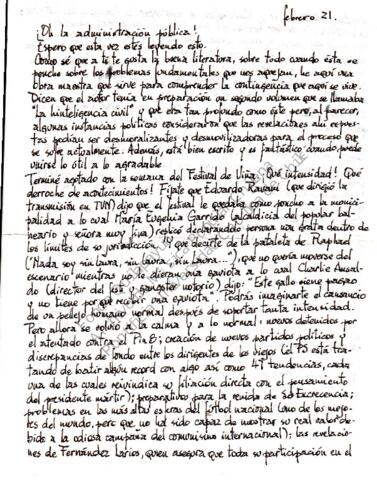 febrero 21.
¡Oh la administración pública!
Espero que esta vez estés leyendo esto.
Como sé que a ti te gusta la buena literatura, sobre todo cuando ésta se
poncho sobre los problemas fundamentales que nos aquejan, he aquí una
obra maestra que sirve para comprender la contingencia que aquí se vive.
Dicen que el autor tenía en preparación un segundo volumen que se llamaba
"La hinteligencia civil" y que era tan profundo como éste pero, al parecer,
algunas instancias políticas consideraron que las revelaciones allí expues-
tas podían ser desmoralizantes y desmovilizadoras para el proceso que
se vive actualmente. Además, está bien escrito y es fantástico cuando puede
unirse lo útil a lo agradable.
Terminé agotado con la semana del Festival de Viña. ¡Qué intensidad! ¡Qué
derroche de acontecimientos! Fíjate que Edoardo Ravani (que dirigió la
transmisión en TVN) dijo que el festival le quedaba como poncho a la munici-
palidad a lo cual María Eugenia Garrido (alcaldicia del popular bal-
neario y señora muy fina) replicó declarándolo persona non grata dentro de
los límites de su jurisdicción. Y qué decirte de la pataleta de Raphael
("Nada, soy sin Laura, sin Laura, sin Laura..."), que no quería moverse del
escenario mientras no le dieran una gaviota a lo cual Charlie Ausal-
do (director del fest y gangster notorio) dijo: "Este gallo viene pagado
y no tiene por qué recibir una gaviota". Podrás imaginarte el cansancio
de un pellejo humano normal después de soportar tanta intensidad.
Pero ahora se volvió a la calma y a lo normal: nuevos detenidos por
el atentado contra Pin 8; creación de nuevos partidos políticos y
discrepancias de fondo entre los dirigentes de los viejos (el PS está tra-
tando de batir algún record con algo así como 47 tendencias, cada
una de las cuales reivindica su filiación directa con el pensamiento
del presidente mártir); preparativos para la venida de Su Excrecencia;
problemas en las más altas esferas del fútbol nacional (uno de los mejo-
res del mundo, pero que no ha sido capaz de mostrar su real valor de-
bido a la odiosa campaña del comunismo internacional); las revelacio-
nes de Fernández Larios, quien asegura que toda su participación en el